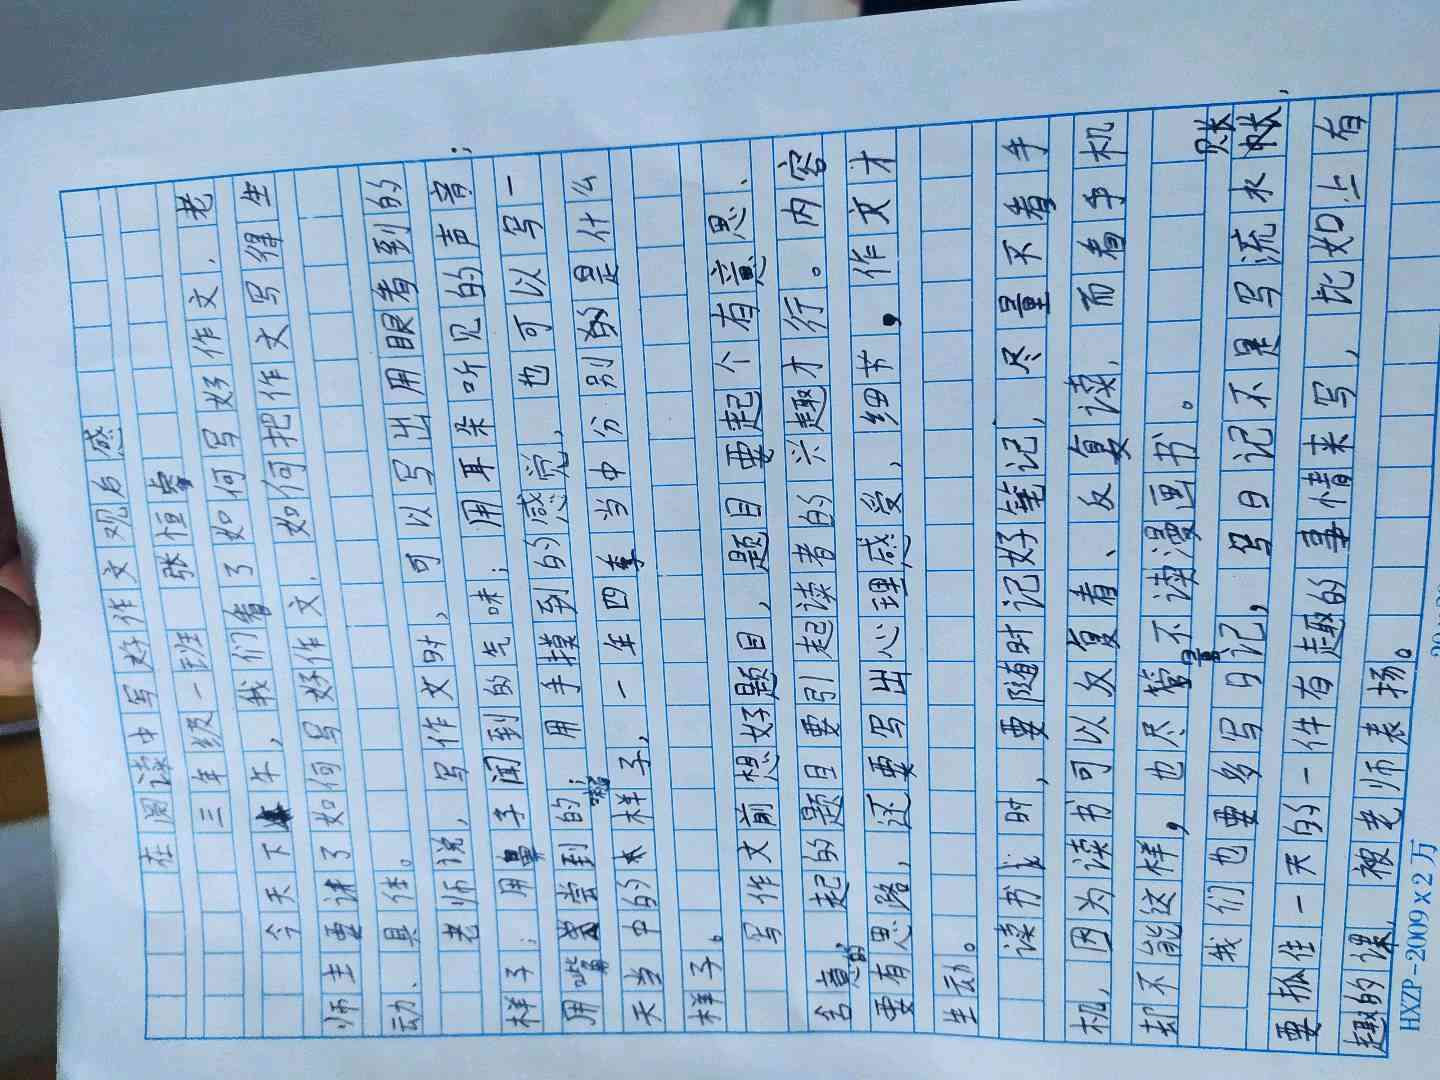 在阅读中写好作文观后感
三年级一班 张恒睿
今天下午，我们看了如何写好作文.老
师主要讲了如何写好作文.如何把作文写得生
动、具体。
老师说，写作文时，可以写出用眼看到的
样子；用鼻子闻到的气味；用耳朵听见的声音；
用嘴尝到的；用手摸到的感觉，也可以写一
天当中的样子，一年四季当中分别的是什么
样子。
写作文前想好题目，题目要起个有意思、
含意的，起的题目要引起读者的兴趣才行。内容
要有思路，还要写出心理感受、细节，作文才
生动。
读书时，要随时记好笔记，尽量不看手
机，因为读书可以反复看、反复读，而看手机
却不能这样，也尽量不读漫画书。
我们也要多写日记，写日记不是写流水账，
要抓住一天的一件有趣的事情来写，比如上有
趣的课，被老师表扬。
HXZP-2009×2万